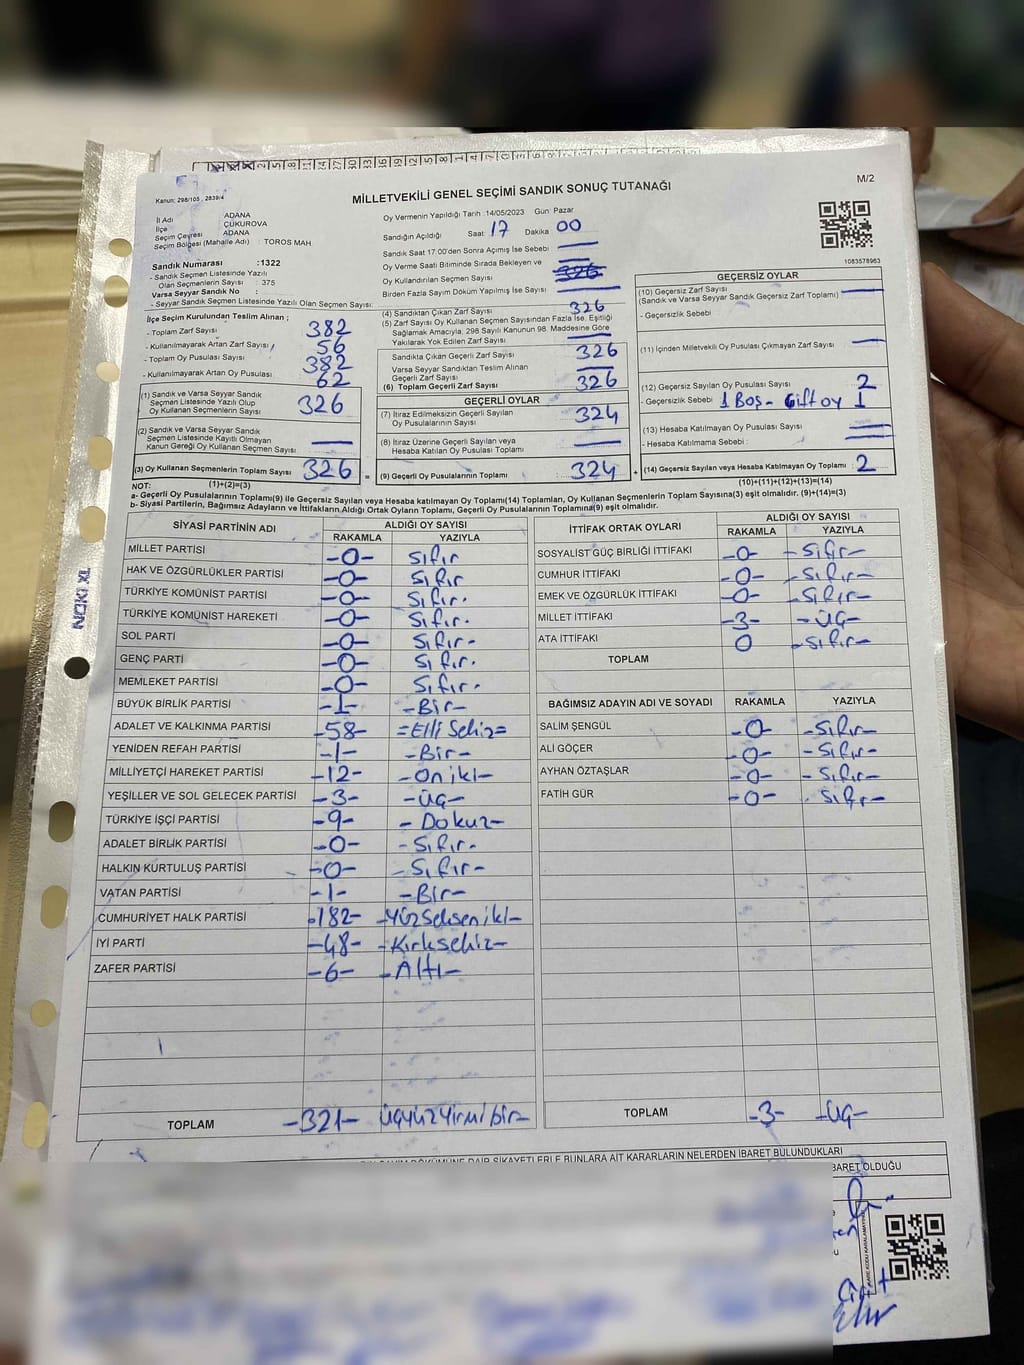 Kanun: 298/105 , 2839/4
MİLLETVEKİLİ GENEL SEÇİMİ SANDIK SONUÇ TUTANAĞI
M/2
İl Adı ADANA
İlçe ÇUKUROVA
Seçim Çevresi ADANA
Seçim Bölgesi (Mahalle Adı) : TOROS MAH
Sandık Numarası :1322
- Sandık Seçmen Listesinde Yazılı
Olan Seçmenlerin Sayısı : 375
Varsa Seyyar Sandık No :
- Seyyar Sandık Seçmen Listesinde Yazılı Olan Seçmen Sayısı:
Oy Vermenin Yapıldığı Tarih :14/05/2023 Gün: Pazar
Sandığın Açıldığı Saat: 17 Dakika 00
Sandık Saat 17:00'den Sonra Açılmış İse Sebebi
Oy Verme Saati Bitiminde Sırada Bekleyen ve
Oy Kullandırılan Seçmen Sayısı
Birden Fazla Sayım Döküm Yapılmış İse Sayısı
1083578963
İlçe Seçim Kurulundan Teslim Alınan ;
- Toplam Zarf Sayısı 382
- Kullanılmayarak Artan Zarf Sayısı 56
- Toplam Oy Pusulası Sayısı 382
- Kullanılmayarak Artan Oy Pusulası 62
(1) Sandık ve Varsa Seyyar Sandık
Seçmen Listesinde Yazılı Olup
Oy Kullanan Seçmenlerin Sayısı 326
(2) Sandık ve Varsa Seyyar Sandık
Seçmen Listesinde Kayıtlı Olmayan
Kanun Gereği Oy Kullanan Seçmen Sayısı
(3) Oy Kullanan Seçmenlerin Toplam Sayısı 326 =
(1)+(2)=(3)
(4) Sandıktan Çıkan Zarf Sayısı 326
(5) Zarf Sayısı Oy Kullanan Seçmen Sayısından Fazla İse, Eşitliği
Sağlamak Amacıyla, 298 Sayılı Kanunun 98. Maddesine Göre
Yakılarak Yok Edilen Zarf Sayısı
Sandıkta Çıkan Geçerli Zarf Sayısı 326
Varsa Seyyar Sandıktan Teslim Alınan
Geçerli Zarf Sayısı
(6) Toplam Geçerli Zarf Sayısı 326
GEÇERLİ OYLAR
(7) İtiraz Edilmeksizin Geçerli Sayılan
Oy Pusulalarının Sayısı 324
(8) İtiraz Üzerine Geçerli Sayılan veya
Hesaba Katılan Oy Pusulası Toplamı
(9) Geçerli Oy Pusulalarının Toplamı : 324 +
GEÇERSİZ OYLAR
(10) Geçersiz Zarf Sayısı
(Sandık ve Varsa Seyyar Sandık Geçersiz Zarf Toplamı)
- Geçersizlik Sebebi
(11) İçinden Milletvekili Oy Pusulası Çıkmayan Zarf Sayısı
(12) Geçersiz Sayılan Oy Pusulası Sayısı 2
- Geçersizlik Sebebi : 1 Boş - Çift oy 1
(13) Hesaba Katılmayan Oy Pusulası Sayısı
- Hesaba Katılmama Sebebi :
(14) Geçersiz Sayılan veya Hesaba Katılmayan Oy Toplamı : 2
(10)+(11)+(12)+(13)=(14)
NOT:
a- Geçerli Oy Pusulalarının Toplamı(9) ile Geçersiz Sayılan veya Hesaba Katılmayan Oy Toplamı(14) Toplamları, Oy Kullanan Seçmenlerin Toplam Sayısına(3) eşit olmalıdır. (9)+(14)=(3)
b- Siyasi Partilerin, Bağımsız Adayların ve İttifakların Aldığı Ortak Oyların Toplamı, Geçerli Oy Pusulalarının Toplamına(9) eşit olmalıdır.
SİYASİ PARTİNİN ADI ALDIĞI OY SAYISI
RAKAMLA YAZIYLA
MİLLET PARTİSİ -0- Sıfır
HAK VE ÖZGÜRLÜKLER PARTİSİ -0- Sıfır
TÜRKİYE KOMÜNİST PARTİSİ -0- Sıfır.
TÜRKİYE KOMÜNİST HAREKETİ -0- Sıfır.
SOL PARTİ -0- Sıfır.
GENÇ PARTİ -0- Sıfır.
MEMLEKET PARTİSİ -0- Sıfır.
BÜYÜK BİRLİK PARTİSİ -1- -Bir-
ADALET VE KALKINMA PARTİSİ -58- =Elli Sekiz=
YENİDEN REFAH PARTİSİ -1- -Bir-
MİLLİYETÇİ HAREKET PARTİSİ -12- -On iki-
YEŞİLLER VE SOL GELECEK PARTİSİ -3- -Üç-
TÜRKİYE İŞÇİ PARTİSİ -9- -Dokuz-
ADALET BİRLİK PARTİSİ -0- -Sıfır.
HALKIN KURTULUŞ PARTİSİ -0- -Sıfır-
VATAN PARTİSİ -1- -Bir-
CUMHURİYET HALK PARTİSİ -182- -Yüzseksen iki-
İYİ PARTİ -48- -Kırksekiz-
ZAFER PARTİSİ -6- -Altı-
TOPLAM -321- Üçyüzyirmi bir-
İTTİFAK ORTAK OYLARI ALDIĞI OY SAYISI
RAKAMLA YAZIYLA
SOSYALİST GÜÇ BİRLİĞİ İTTİFAKI -0- -Sıfır-
CUMHUR İTTİFAKI -0- -Sıfır-
EMEK VE ÖZGÜRLÜK İTTİFAKI -0- -Sıfır-
MİLLET İTTİFAKI -3- -Üç-
ATA İTTİFAKI 0 -Sıfır-
TOPLAM
BAĞIMSIZ ADAYIN ADI VE SOYADI RAKAMLA YAZIYLA
SALİM ŞENGÜL -0- -Sıfır-
ALİ GÖÇER -0- -Sıfır-
AYHAN ÖZTAŞLAR -0- -Sıfır-
FATİH GÜR -0- Sıfır-
TOPLAM -3- -Üç-
SAYIM DÖKÜMÜNE DAİR ŞİKAYETLERLE BUNLARA AİT KARARLARIN NELERDEN İBARET BULUNDUKLARI
BARET OLDUĞU